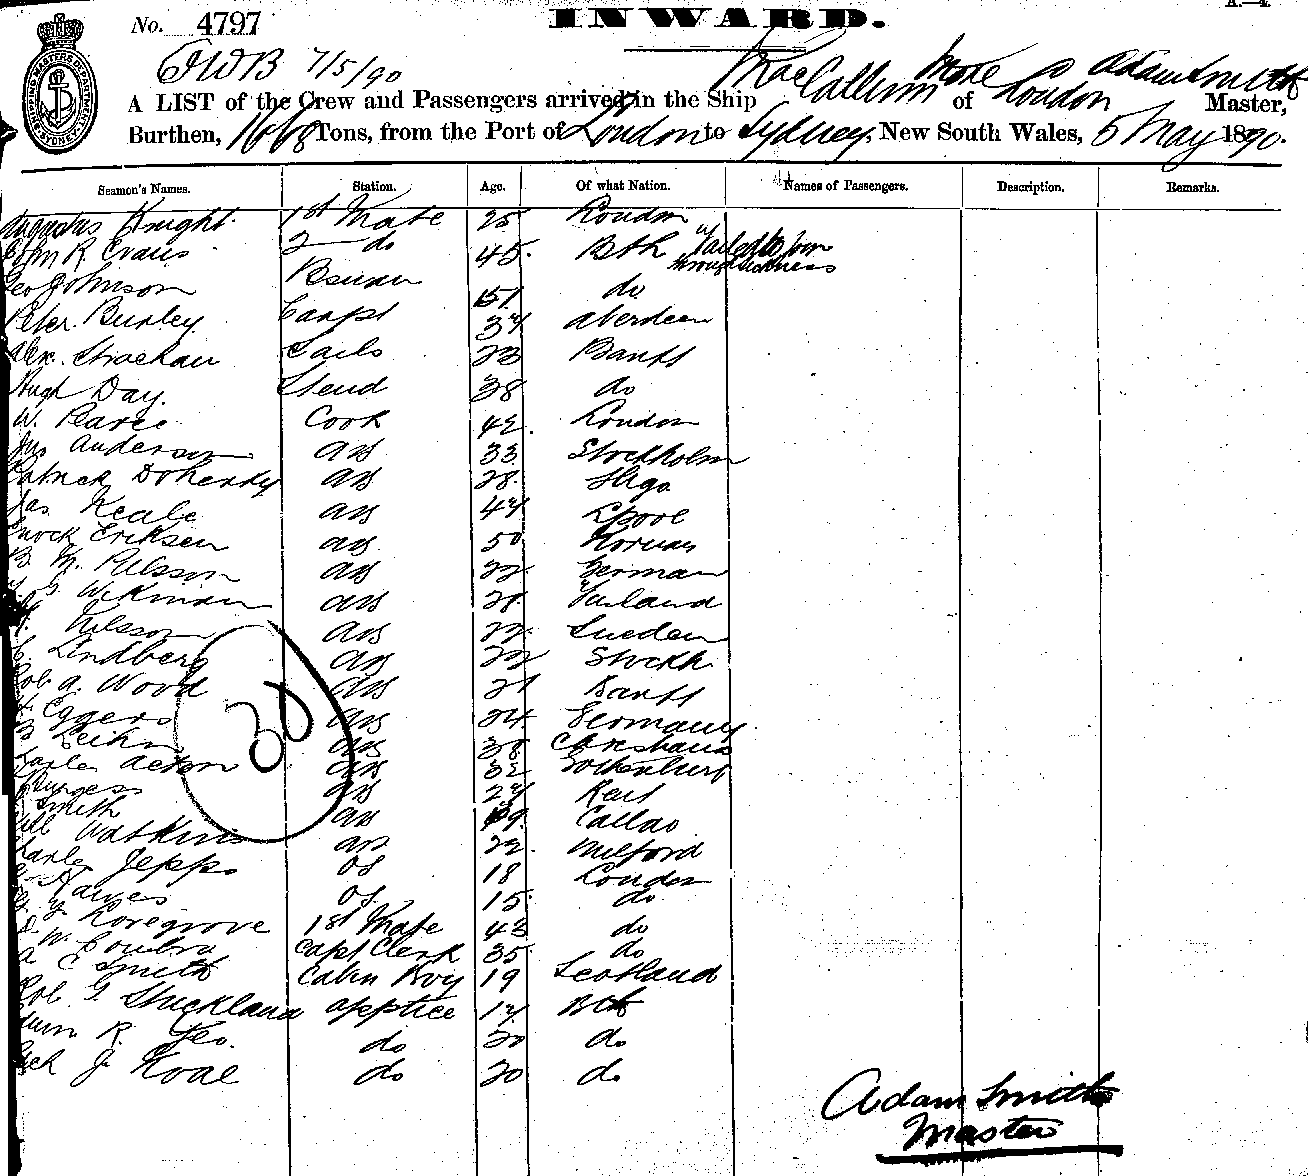 INWARD.
No. 4797
7/5/90
A LIST of the Crew and Passengers arrived in the Ship MacCallum More of London Adam Smith Master,
Burthen, 1668 Tons, from the Port of London to Sydney, New South Wales, 5 May 1890.
Seamen's Names. Station. Age. Of what Nation. Names of Passengers. Description. Remarks.
Knight 1st Mate 25 London
John R. Evans 2 do 45 Bth failed to join
through sickness
Geo Johnson Bsman 51 do
Peter Burley Carpt 37 Aberdeen
Alex. Strachan Sails 23 Banff
Hugh Day. Steud 38 do
W. Pearce Cook 42 London
Jns Anderson AB 33 Stockholm
Patrick Doherty AB 28 Sligo
Jas Keale AB 47 Lpool
Enock Eriksen AB 50 Norway
B. M. Nilsson AB 22 German
G Wikman AB 28 Finland
Nilsson AB 22 Sueden
C Lindberg AB 22 Stockh
Rob A. Wood AB 21 Banff
Eggers AB 24 Germany
AB 38
AB 32 Gothenburg
Burgess AB 27
Smith AB 19 Callao
Will Watkins AB 22 Milford
Charles Jepps OS 18 London
Hawes OS 15 do
Lovegrove 1st Mate 43 do
W. Capt Clerk 35 do
A C Smith Cabin Boy 19 Scotland
Rob G Strickland Apptice 17 Bth
R. do 20 do
J. do 20 do
30
Adam Smith
Master